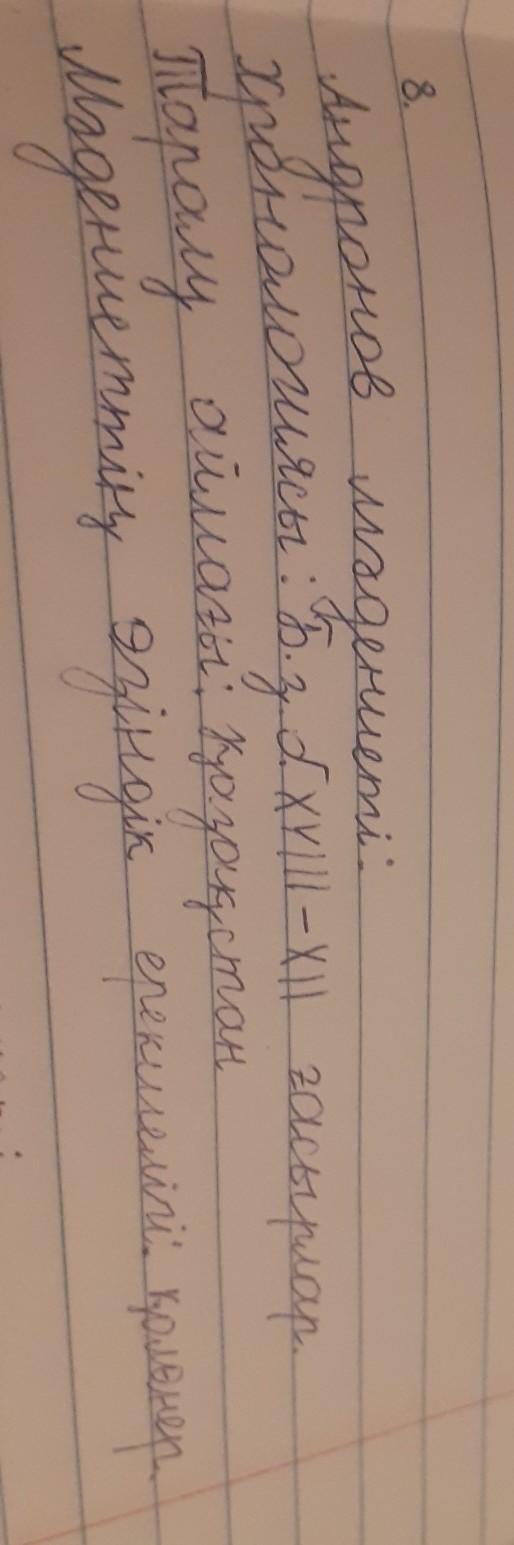 8.
Андронов мәдениеті.
Хронологиясы: Б.з.б. XVIII-XII ғасырлар.
Таралу аймағы: Қазақстан
Мәдениеттің өзіндік ерекшелігі: қолөнер.